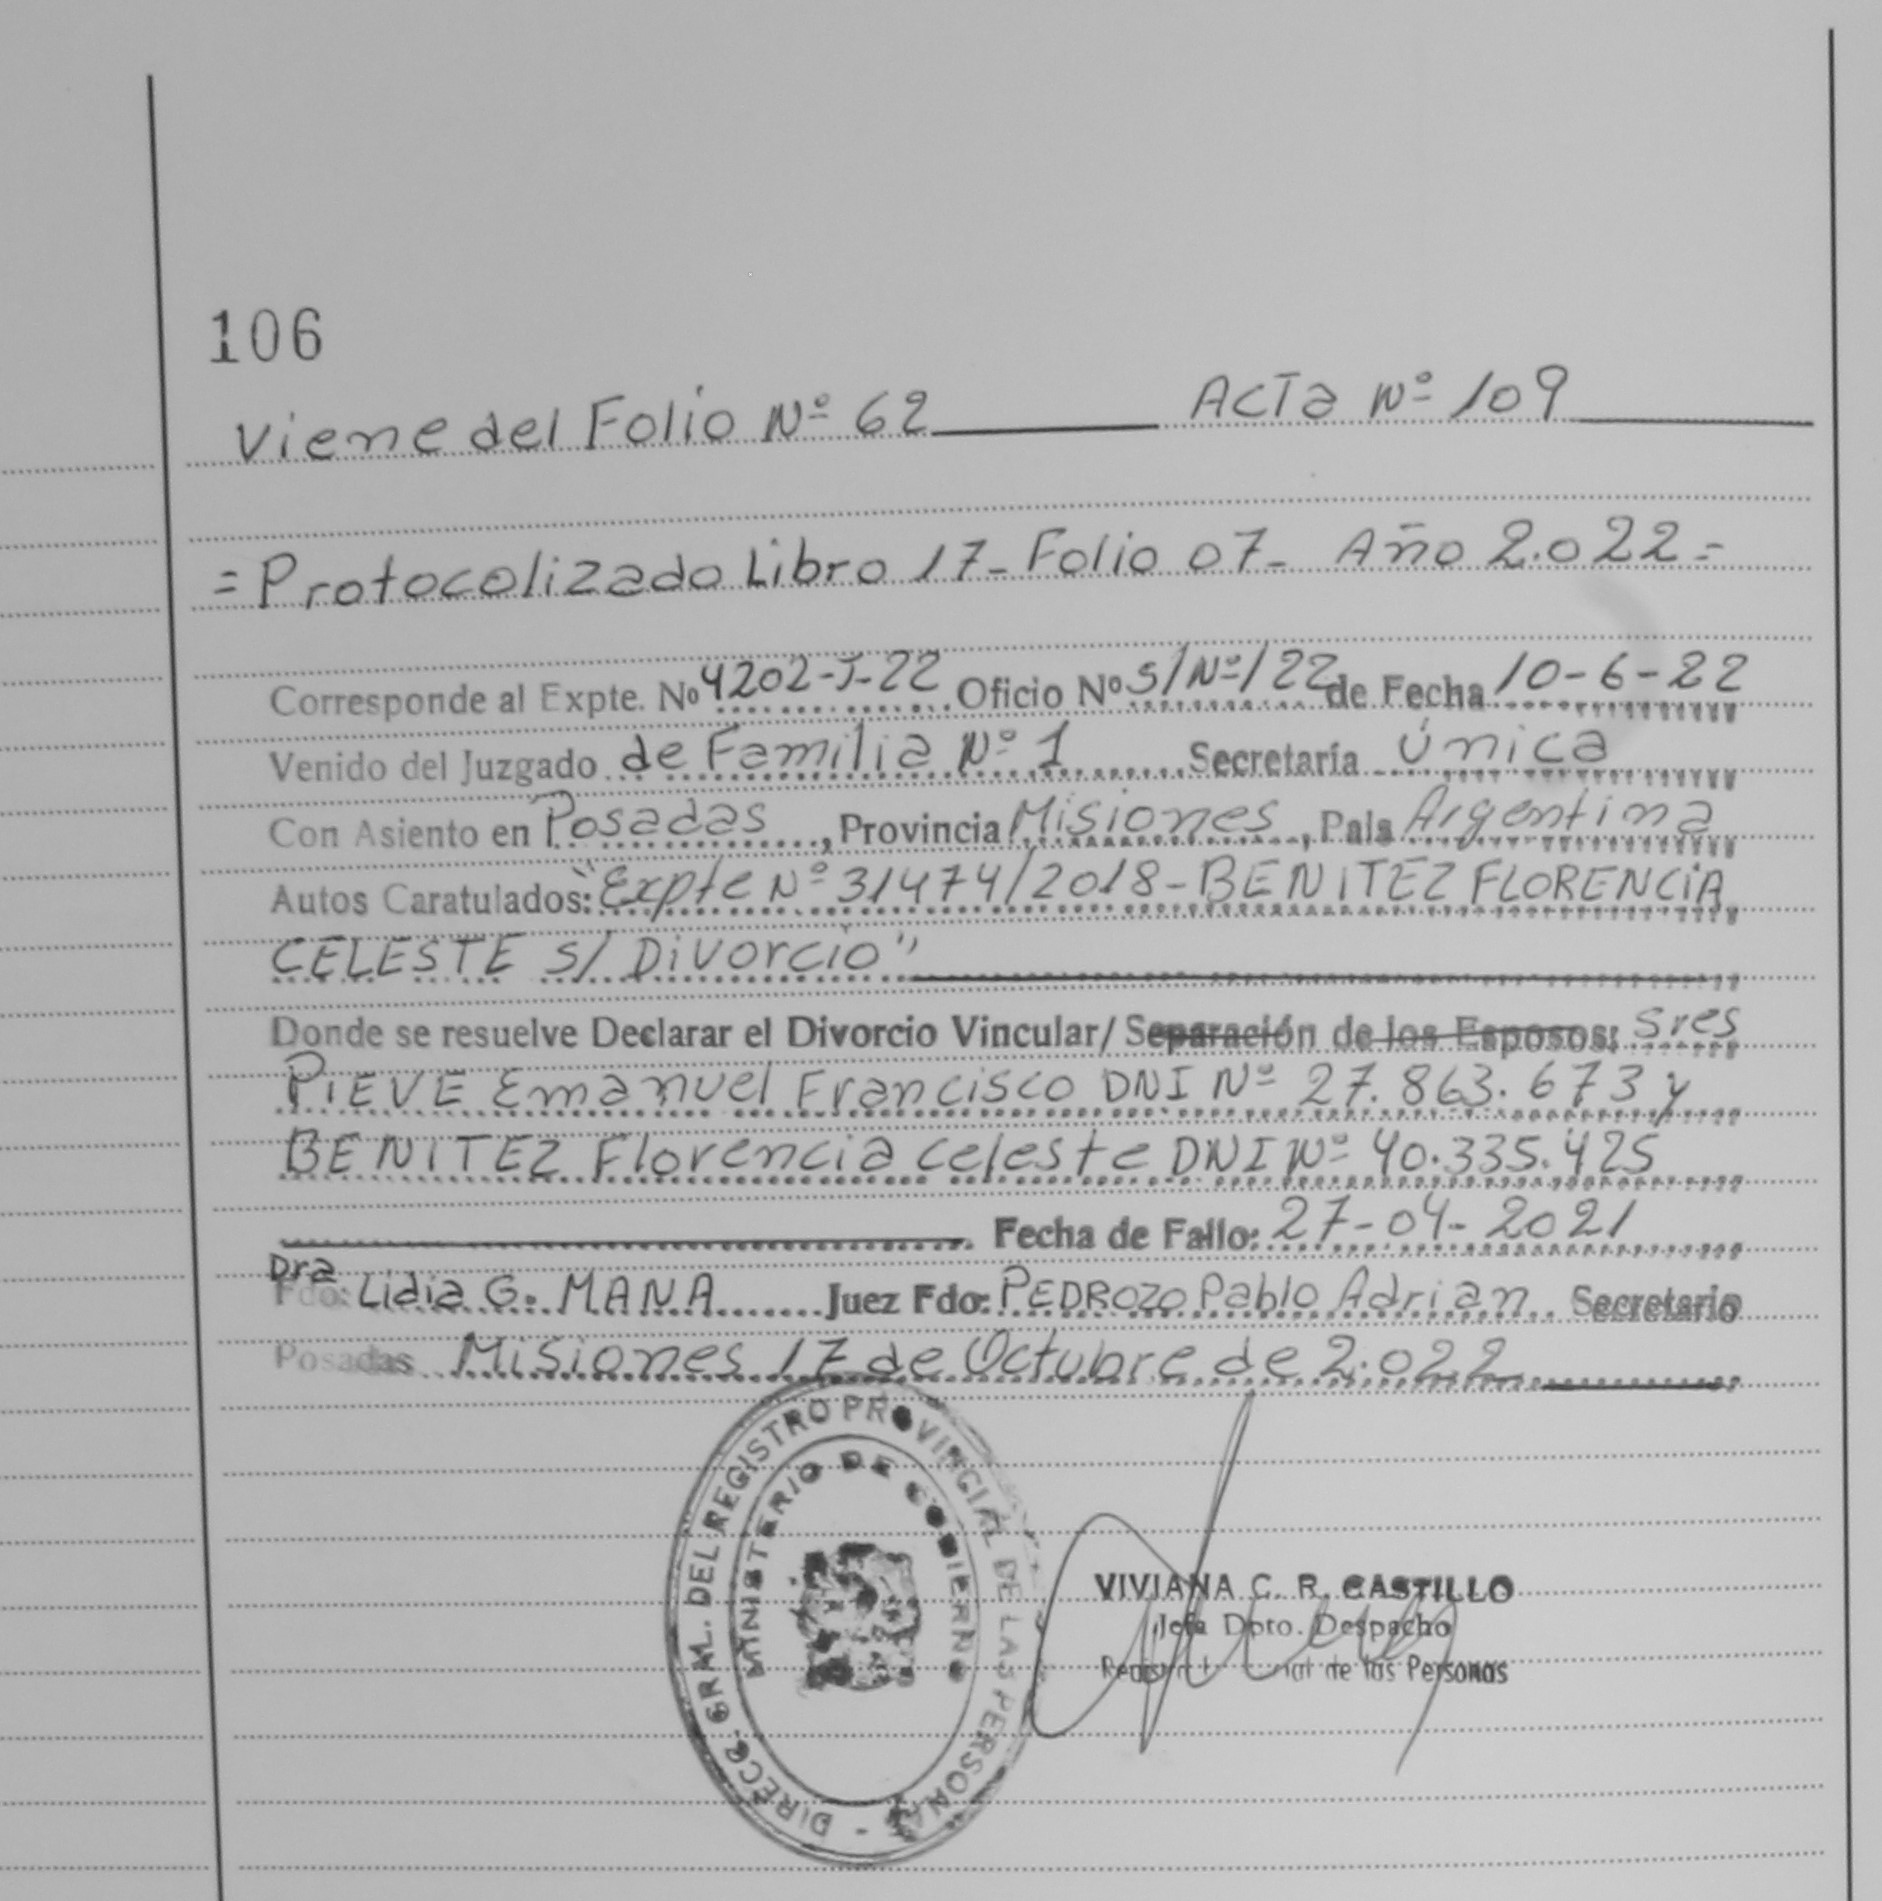 106
Viene del Folio Nº 62 Acta Nº 109
=Protocolizado Libro 17- Folio 07- Año 2.022=
Corresponde al Expte. Nº 4202-J-22 Oficio Nº S/Nº/22 de Fecha 10-6-22
Venido del Juzgado de Familia Nº 1 Secretaría Única
Con Asiento en Posadas, Provincia Misiones, País Argentina
Autos Caratulados: "Expte Nº 31474/2018-BENITEZ FLORENCIA
CELESTE S/ Divorcio"
Donde se resuelve Declarar el Divorcio Vincular/ Separación de los Esposos: Sres
PIEVE Emanuel Francisco DNI Nº 27.863.673 y
BENITEZ Florencia Celeste DNI Nº 40.335.425
Fecha de Fallo: 27-04-2021
Dra
Fdo: Lidia G. MANA Juez Fdo: PEDROZO Pablo Adrian Secretario
Posadas Misiones 17 de Octubre de 2.022
DIRECC. GRAL. DEL REGISTRO PROVINCIAL DE LAS PERSONAS -
MINISTERIO DE GOBIERNO
VIVIANA C. R. CASTILLO
Jefa Dpto. Despacho
de las Personas